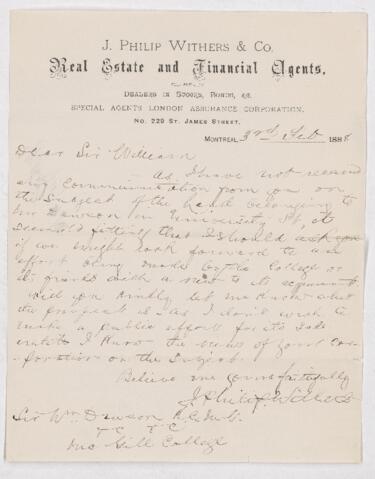 J. Philip Withers & Co.
Real Estate and Financial Agents,
Dealers in Stocks, Bonds, &c.
Special Agents London Assurance Corporation.
No. 220 St. James Street.
Montreal, 3rd Feb 1888
Dear Sir William
As I have not received
any communication from you on
the subject of the land belonging to
Mr Dawson on University St, it
seems fitting that I should ask you
if we might look forward to an
effort being made by the College or
its friends with a view to its
will you kindly let me know what
the prospect is. As I don't wish to
make a public effort for its sale
until I know the views of your
on the subject.
Believe me yours faithfully
J. Philip Withers
Sir Wm Dawson K.C.M.G.
McGill College